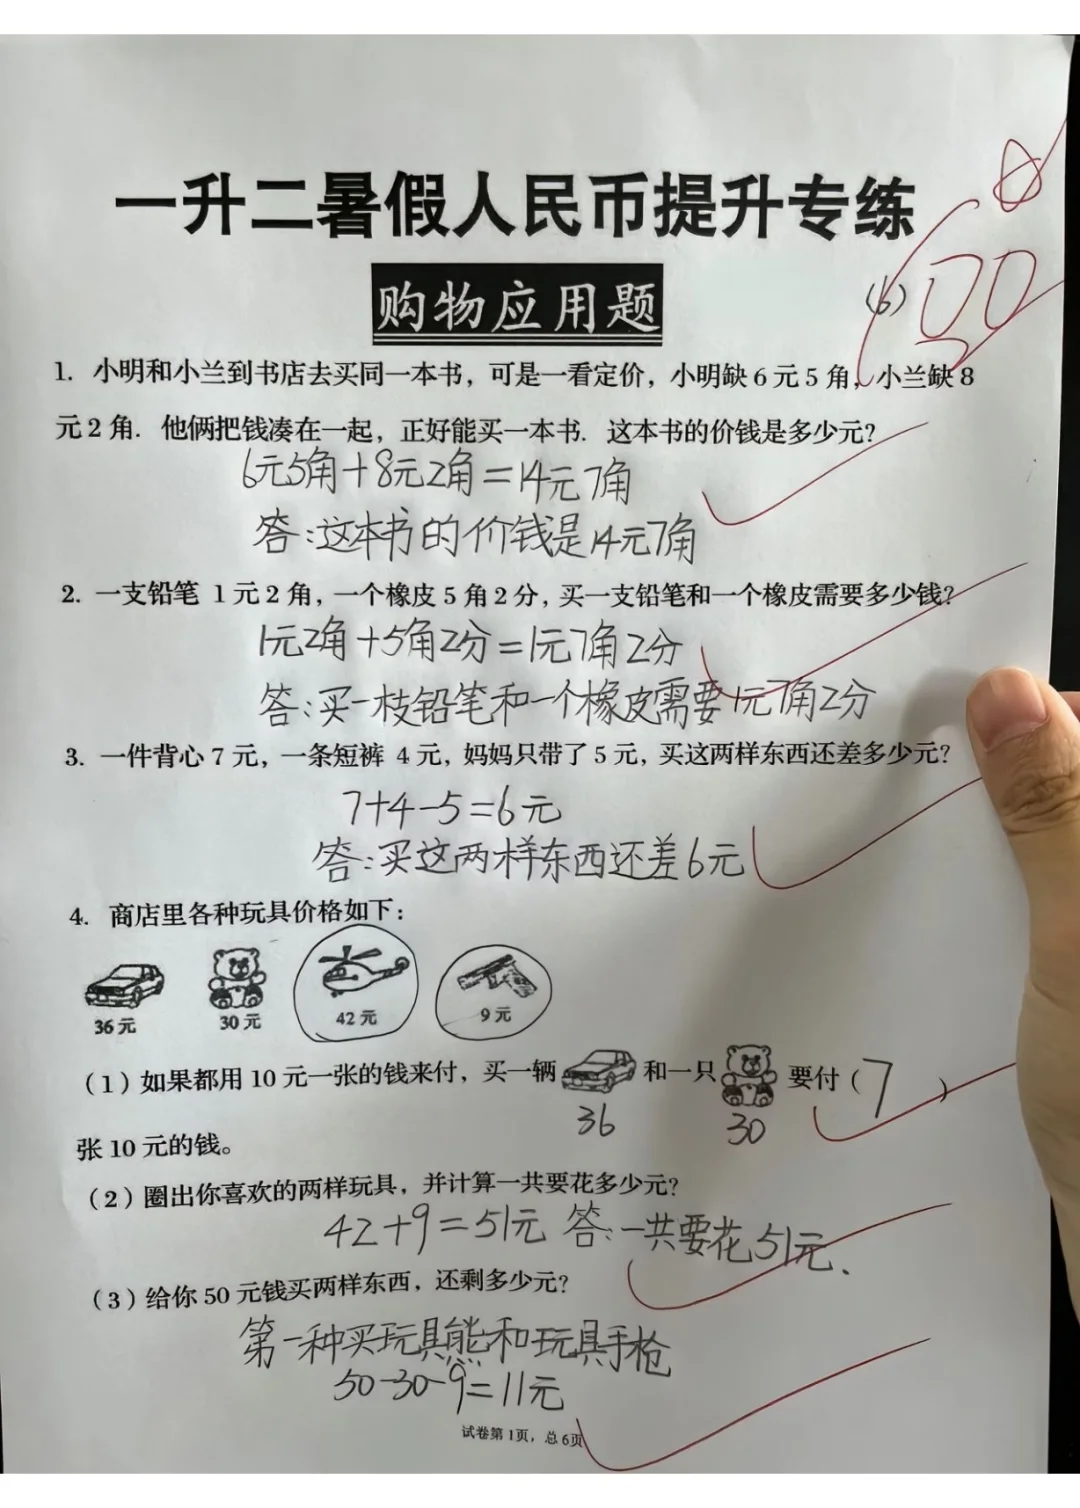 一升二暑假人民币提升专练
购物应用题
(6)
100
1. 小明和小兰到书店去买同一本书，可是一看定价，小明缺6元5角，小兰缺8
元2角. 他俩把钱凑在一起，正好能买一本书. 这本书的价钱是多少元？
6元5角+8元2角=14元7角
答:这本书的价钱是14元7角
2. 一支铅笔 1元2角，一个橡皮5角2分，买一支铅笔和一个橡皮需要多少钱？
1元2角+5角2分=1元7角2分
答:买一枝铅笔和一个橡皮需要1元7角2分
3. 一件背心7元，一条短裤 4元，妈妈只带了5元，买这两样东西还差多少元？
7+4-5=6元
答:买这两样东西还差6元
4. 商店里各种玩具价格如下：
36元 30元 42元 9元
（1）如果都用10元一张的钱来付，买一辆 和一只 要付（7）
36 30
张10元的钱。
（2）圈出你喜欢的两样玩具，并计算一共要花多少元？
42+9=51元 答:一共要花51元.
（3）给你50元钱买两样东西，还剩多少元？
第一种买玩具熊和玩具手枪
50-30-9=11元
试卷第1页，总6页